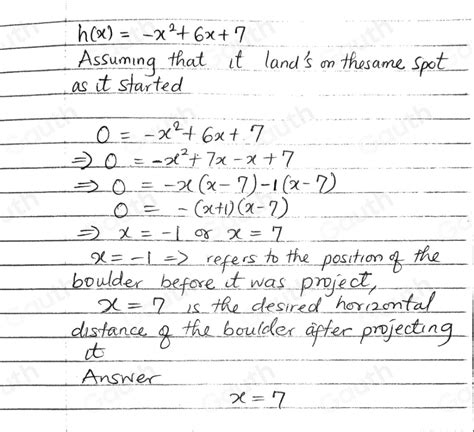 h(x) = -x²+6x+7
Assuming that it land's on thesame spot
as it started
0 = -x²+6x+7
⇒ 0 = -x²+7x-x+7
⇒ 0 = -x(x-7)-1(x-7)
0 = -(x+1)(x-7)
⇒ x = -1 or x = 7
x = -1 => refers to the position of the
boulder before it was project,
x = 7 is the desired horizontal
distance of the boulder after projecting
it
Answer
x = 7